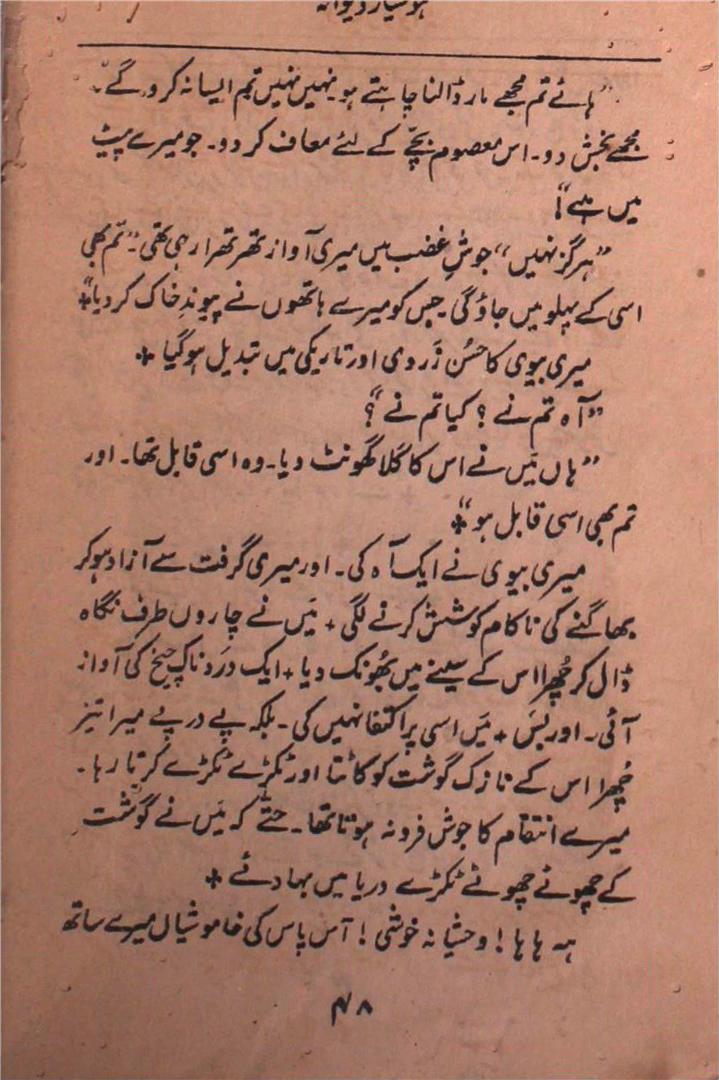 ہوشیار دیوانہ
”ہائے تم مجھے مار ڈالنا چاہتے ہو نہیں نہیں تم ایسا نہ کرو گے۔
مجھے بخش دو۔ اس معصوم بچّے کے لئے معاف کر دو۔ جو میرے پیٹ
میں ہے“!
”ہرگز نہیں“ جوشِ غضب میں میری آواز تھرتھرا رہی تھی۔ ”تم بھی
اسی کے پہلو میں جاؤ گی جس کو میرے ہاتھوں نے پیوندِ خاک کر دیا“٭
میری بیوی کا حسُن زَردی اور تاریکی میں تبدیل ہو گیا ٭
”آہ تم نے؟ کیا تم نے“؟
”ہاں مَیں نے اس کا گلا گھونٹ دیا۔ وہ اسی قابل تھا۔ اور
تم بھی اسی قابل ہو“٭
میری بیوی نے ایک آہ کی۔ اور میری گرفت سے آزاد ہو کر
بھاگنے کی ناکام کوشش کرنے لگی ٭ مَیں نے چاروں طرف نگاہ
ڈال کر چُھرا اس کے سینے میں بھُونک دیا ٭ ایک دَردناک چیخ کی آواز
آئی۔ اور بسَ ٭ مَیں اسی پر اکتفا نہیں کی۔ بلکہ پے در پے میرا تیز
چُھرا اس کے نازک گوشت کو کاٹتا اور ٹکڑے ٹکڑے کرتا رہا۔
میرے انتقام کا جوش فرو نہ ہوتا تھا۔ حتےٰ کہ مَیں نے گوشت
کے چھوٹے چھوٹے ٹکڑے دریا میں بہا دئے ٭
ہہ ہا ہا! وحشیانہ خوشی! آس پاس کی خاموشیاں میرے ساتھ
۴۸